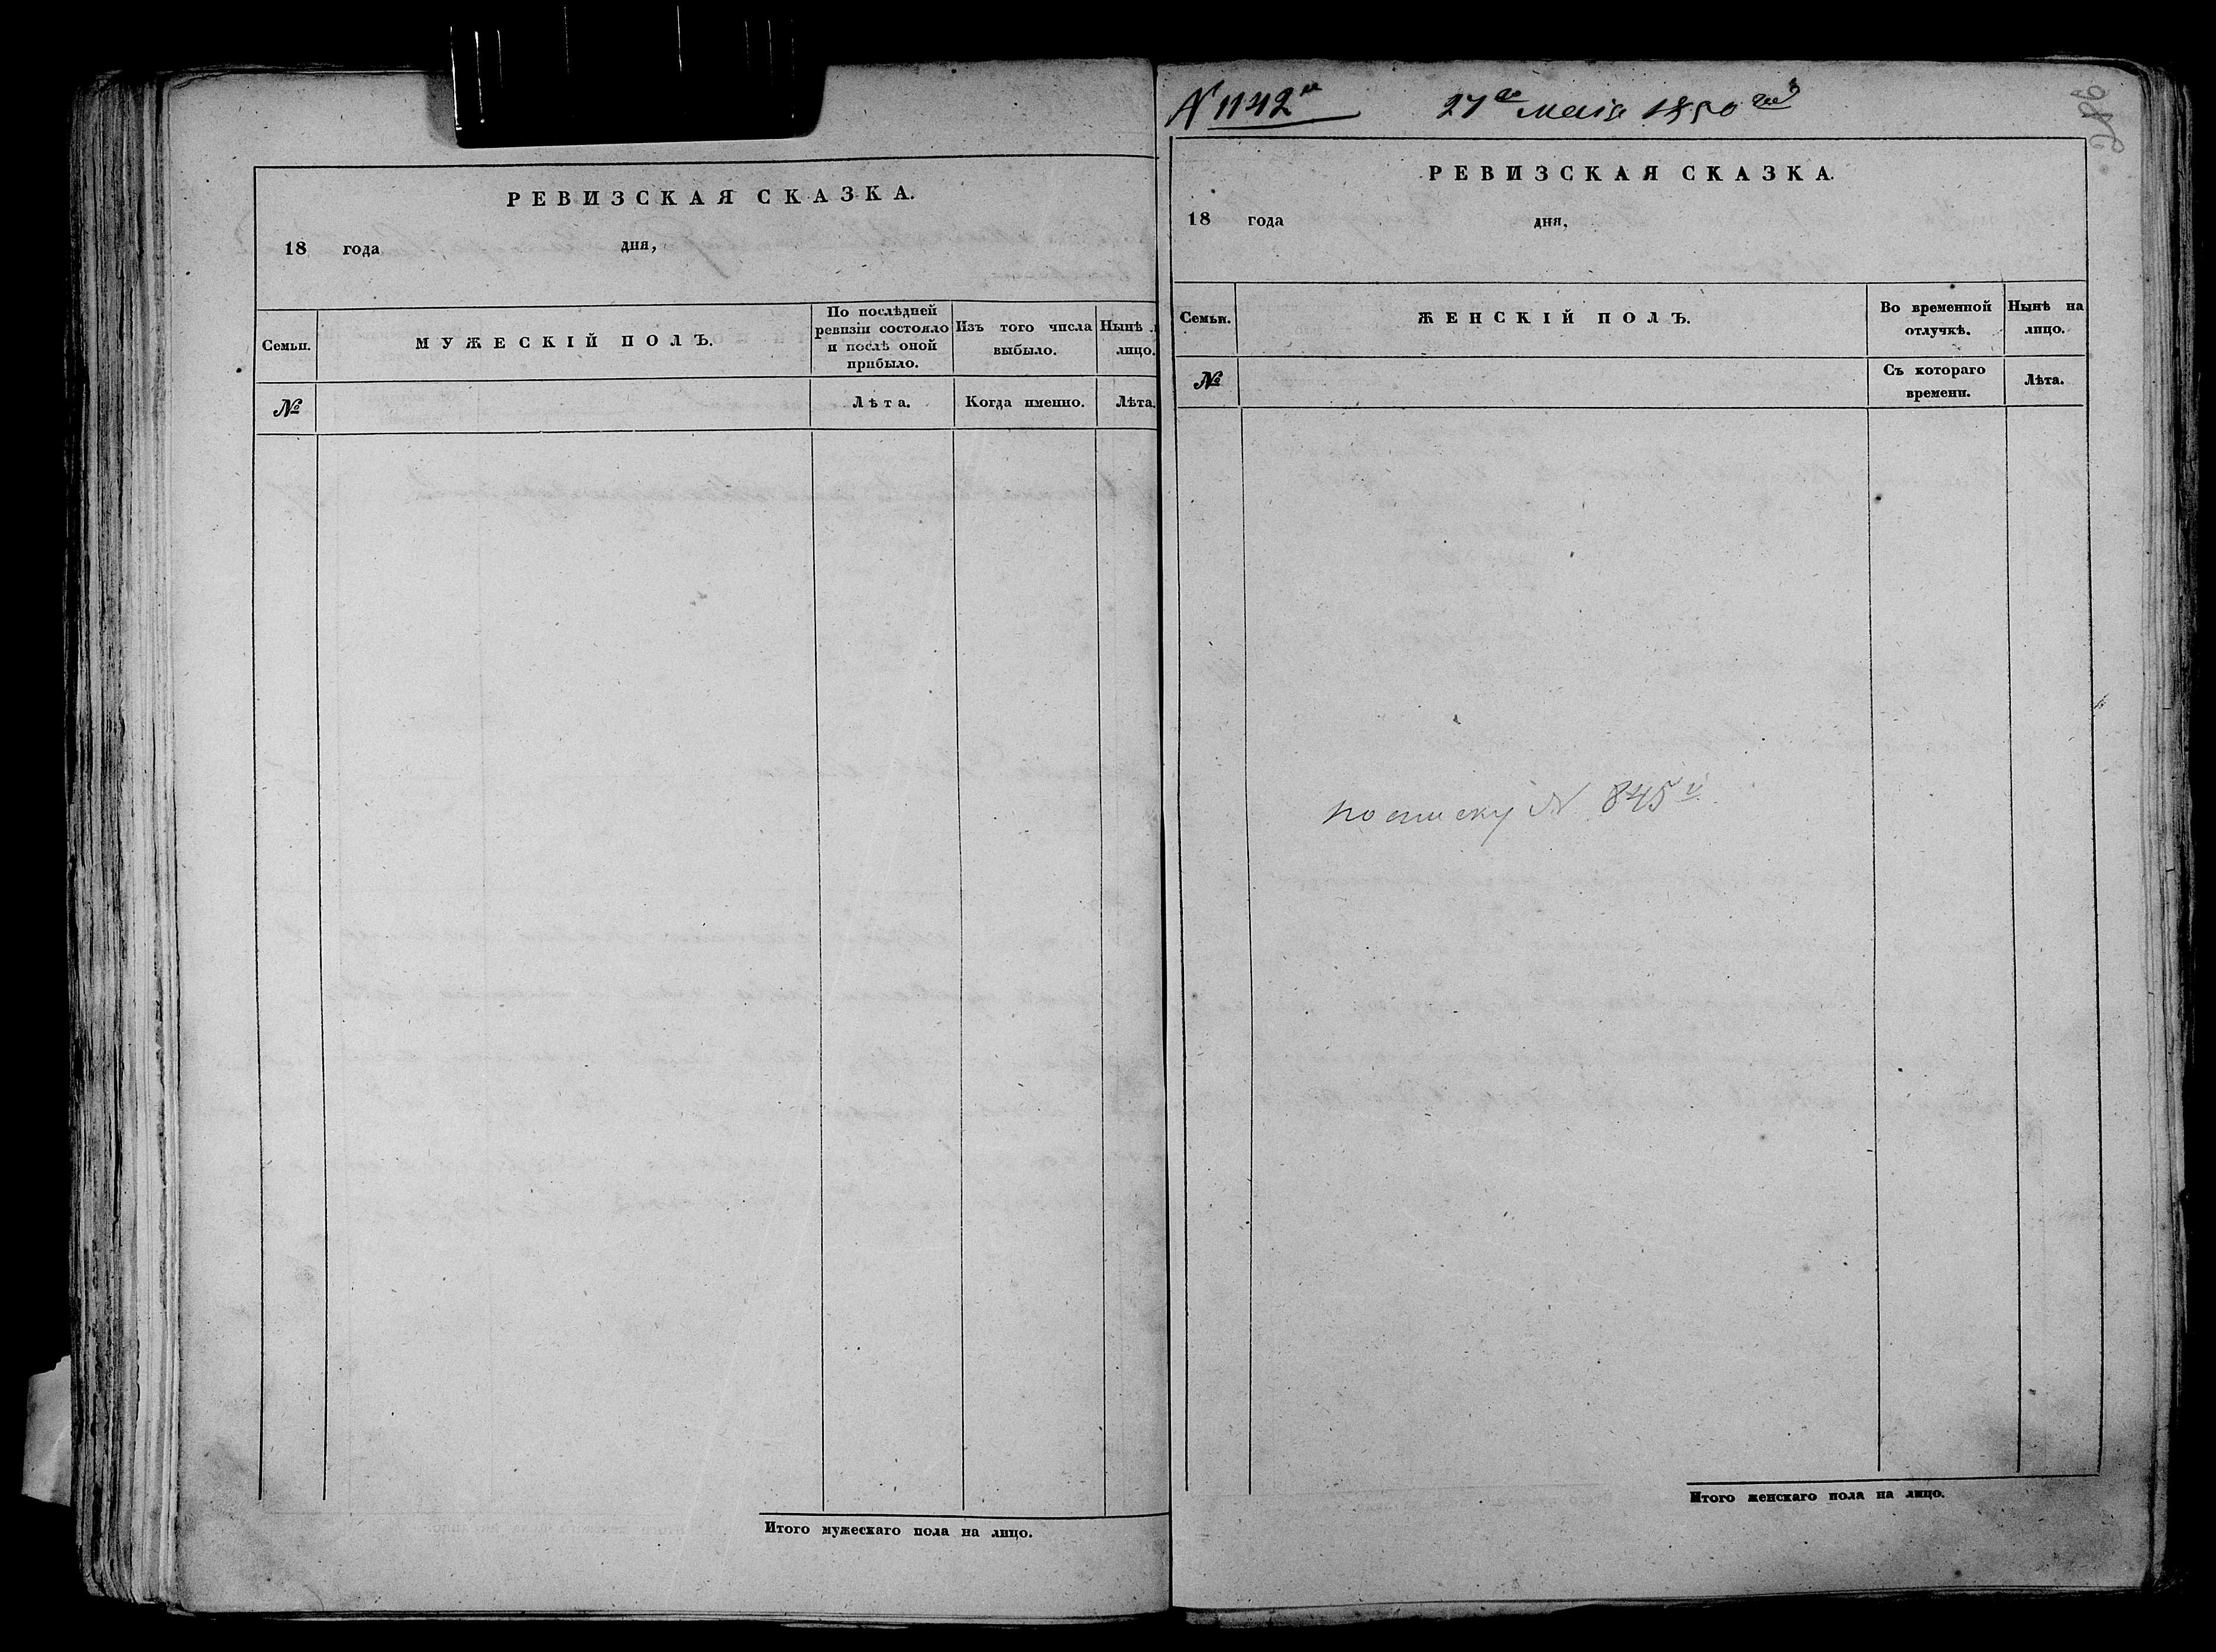 РЕВИЗСКАЯ СКАЗКА.
18 года дня,
Семьи.
МУЖЕСКІЙ ПОЛЪ.
По послѣдней
ревизіи состояло
и послѣ оной
прибыло.
Изъ того числа
выбыло.
Нынѣ
лицо.
№
Лѣта.
Когда именно.
Лѣта.
Итого мужескаго пола на лицо.
N 1142й 27го маія 1850 год
РЕВИЗСКАЯ СКАЗКА.
18 года дня,
Семьи.
ЖЕНСКІЙ ПОЛЪ.
Во временной
отлучкѣ.
Нынѣ на
лицо.
№
Съ котораго
времени.
Лѣта.
по списку N 845й
Итого женскаго пола на лицо.